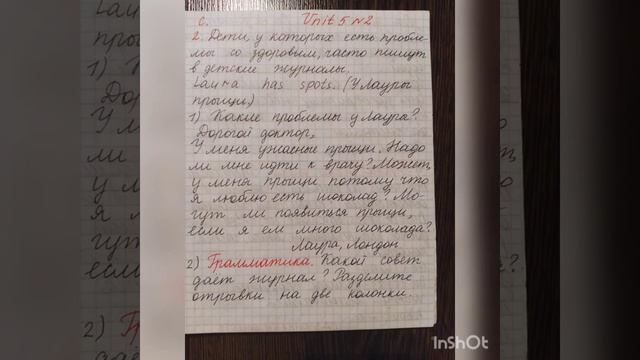 с. Unit 5 №2
2. Дети, у которых есть пробле-
мы со здоровьем, часто пишут
в детские журналы.
Laura has spots. (У Лауры
прыщи.)
1) Какие проблемы у Лаура?
Дорогой доктор,
У меня ужасные прыщи. Надо
ли мне идти к врачу? Может,
у меня прыщи потому что
я люблю есть шоколад? Мо-
гут ли появиться прыщи,
если я ем много шоколада?
Лаура, Лондон
2) Грамматика. Какой совет
даёт журнал? Разделите
отрывки на две колонки.
InShOt